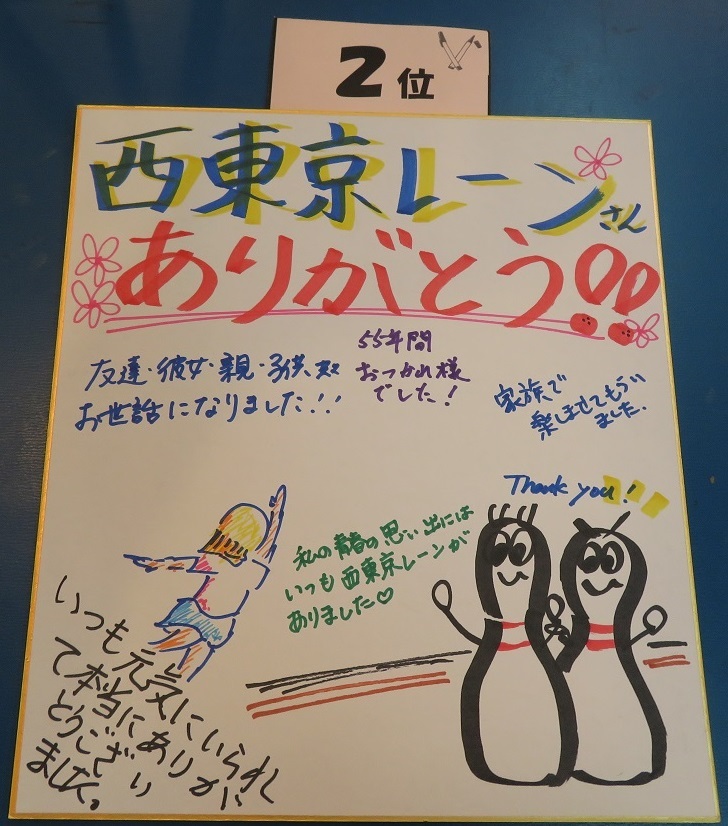 2位
西東京レーンさん
ありがとう!!
友達・彼女・親・子供、奴
お世話になりました!!
55年間
おつかれ様
でした!
家族で
楽しませてもらい
ました.
Thank you!
私の青春の思い出には
いつも西東京レーンが
ありました♡
いつも元気にいられ
て本当にありが
とうござい
ました。